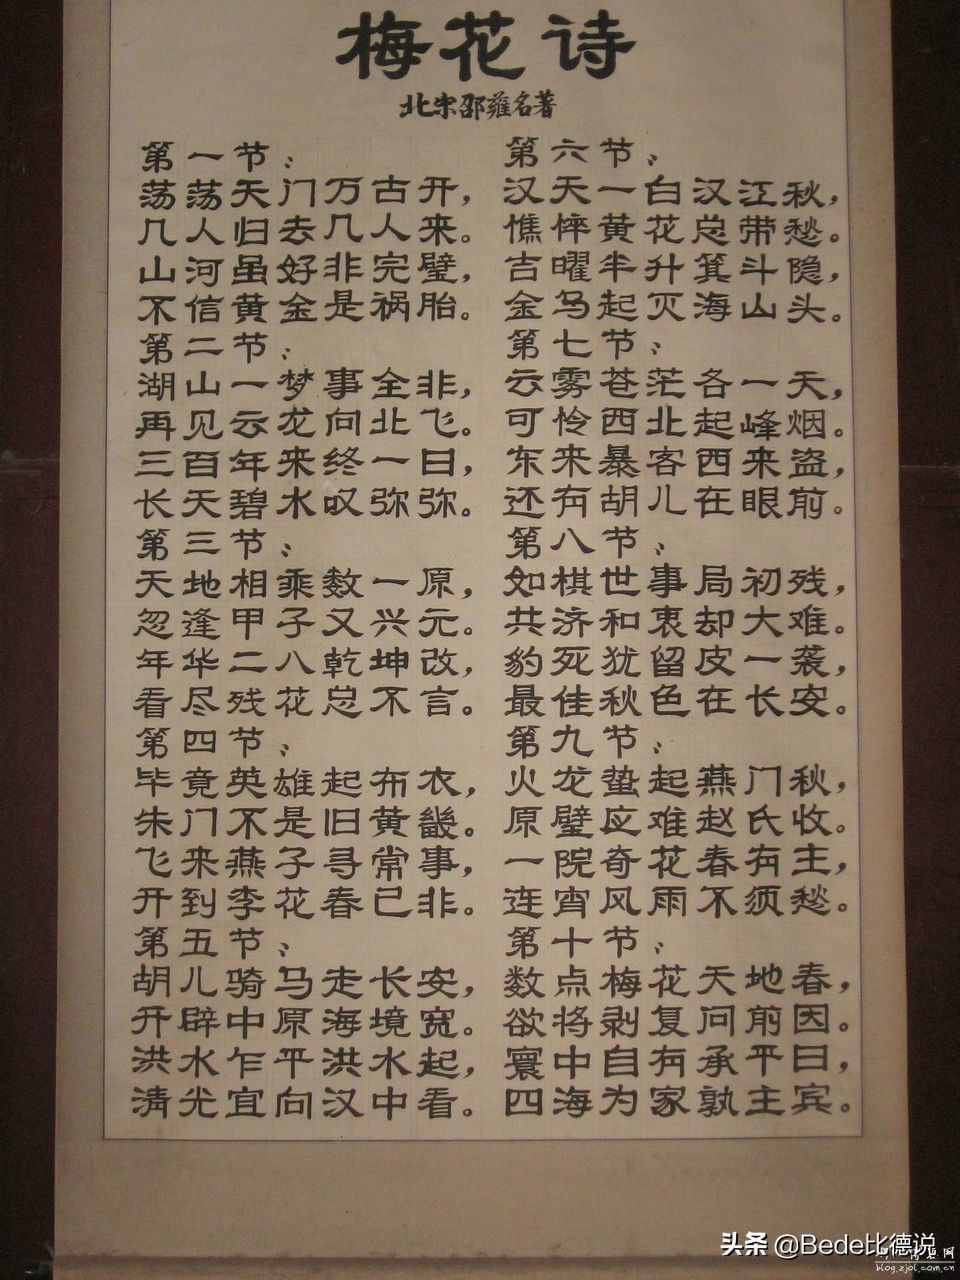 梅花诗
北宋邵雍名著
第一节：
荡荡天门万古开，
几人归去几人来。
山河虽好非完璧，
不信黄金是祸胎。
第二节：
湖山一梦事全非，
再见云龙向北飞。
三百年来终一日，
长天碧水叹弥弥。
第三节：
天地相乘数一原，
忽逢甲子又兴元。
年华二八乾坤改，
看尽残花总不言。
第四节：
毕竟英雄起布衣，
朱门不是旧黄畿。
飞来燕子寻常事，
开到李花春已非。
第五节：
胡儿骑马走长安，
开辟中原海境宽。
洪水乍平洪水起，
清光宜向汉中看。
第六节：
汉天一白汉江秋，
憔悴黄花总带愁。
吉曜半升箕斗隐，
金乌起灭海山头。
第七节：
云雾苍茫各一天，
可怜西北起峰烟。
东来暴客西来盗，
还有胡儿在眼前。
第八节：
如棋世事局初残，
共济和衷却大难。
豹死犹留皮一袭，
最佳秋色在长安。
第九节：
火龙蛰起燕门秋，
原璧应难赵氏收。
一院奇花春有主，
连宵风雨不须愁。
第十节：
数点梅花天地春，
欲将剥复问前因。
寰中自有承平日，
四海为家孰主宾。
头条 @Bede比德说
blog.zjol.com.cn